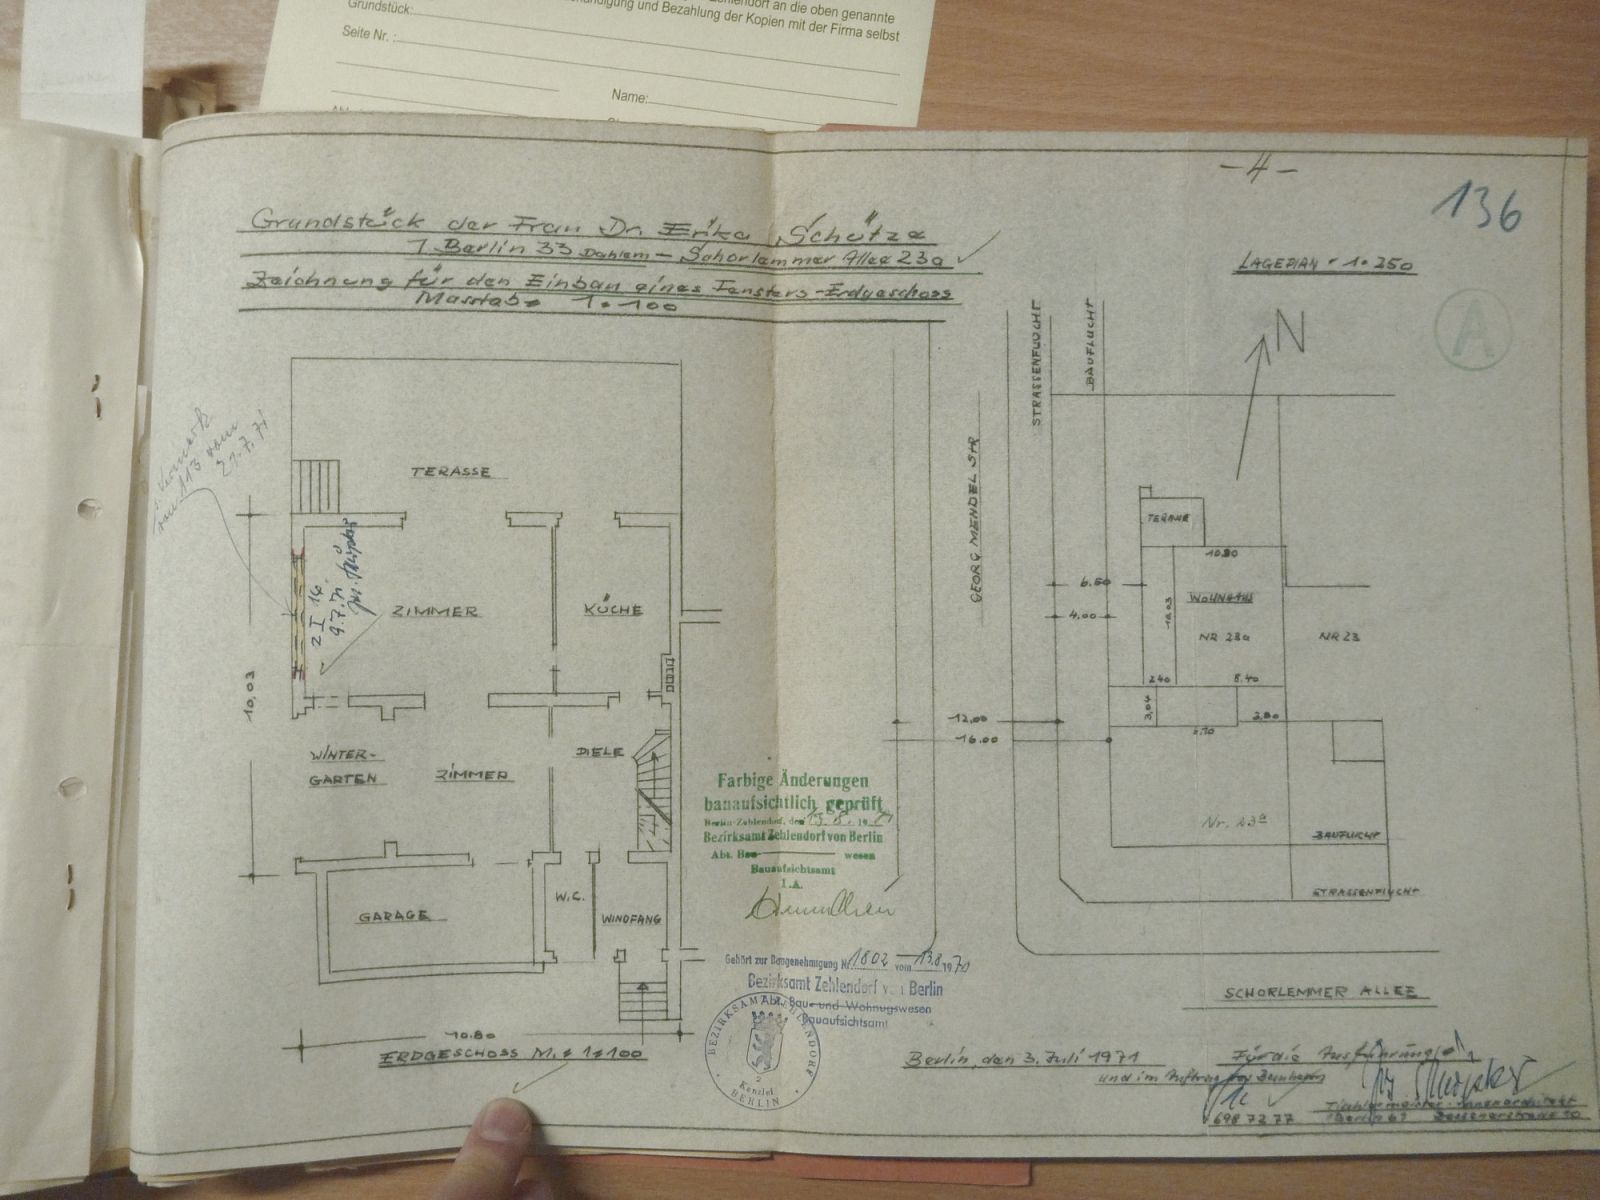 Zehlendorf an die oben genannte
und Bezahlung der Kopien mit der Firma selbst
Grundstück:
Seite Nr. :
Name:
- 4 -
136
Grundstück der Frau Dr. Erika Schütze
1 Berlin 33 Dahlem - Schorlemmer Allee 23a
Zeichnung für den Einbau eines Fensters - Erdgeschoss
Masstab = 1:100
LAGEPLAN - 1:250
A
N
STRASSENFLUCHT
BAUFLUCHT
GEORG MENDEL STR
TERASSE
21.7.71
ZIMMER
KÜCHE
2 I 14
9.7.71
10,03
WINTER-
GARTEN
ZIMMER
DIELE
GARAGE
W.C.
WINDFANG
10.80
ERDGESCHOSS M. = 1:100
10.80
6.50
4,00
10.03
WOHNHAUS
NR 23a
NR 23
2.40
8.40
3,04
2,80
5.70
12.00
16.00
Nr. 23a
BAUFLUCHT
STRASSENFLUCHT
SCHORLEMMER ALLEE
Farbige Änderungen
bauaufsichtlich geprüft
Berlin-Zehlendorf, den 13.8.1971
Bezirksamt Zehlendorf von Berlin
Abt. Bau- wesen
Bauaufsichtsamt
I.A.
Gehört zur Baugenehmigung Nr. 1802 vom 13.8.1971
Bezirksamt Zehlendorf von Berlin
Abt. Bau- und Wohnugswesen
Bauaufsichtsamt
BEZIRKSAMT ZEHLENDORF
2
Kanzlei
BERLIN
Berlin, den 3. Juli 1971
Für die Ausführung
und im Auftrag des Bauherrn
698 72 77
Tischlermeister - Innenarchitekt
1 Berlin 61